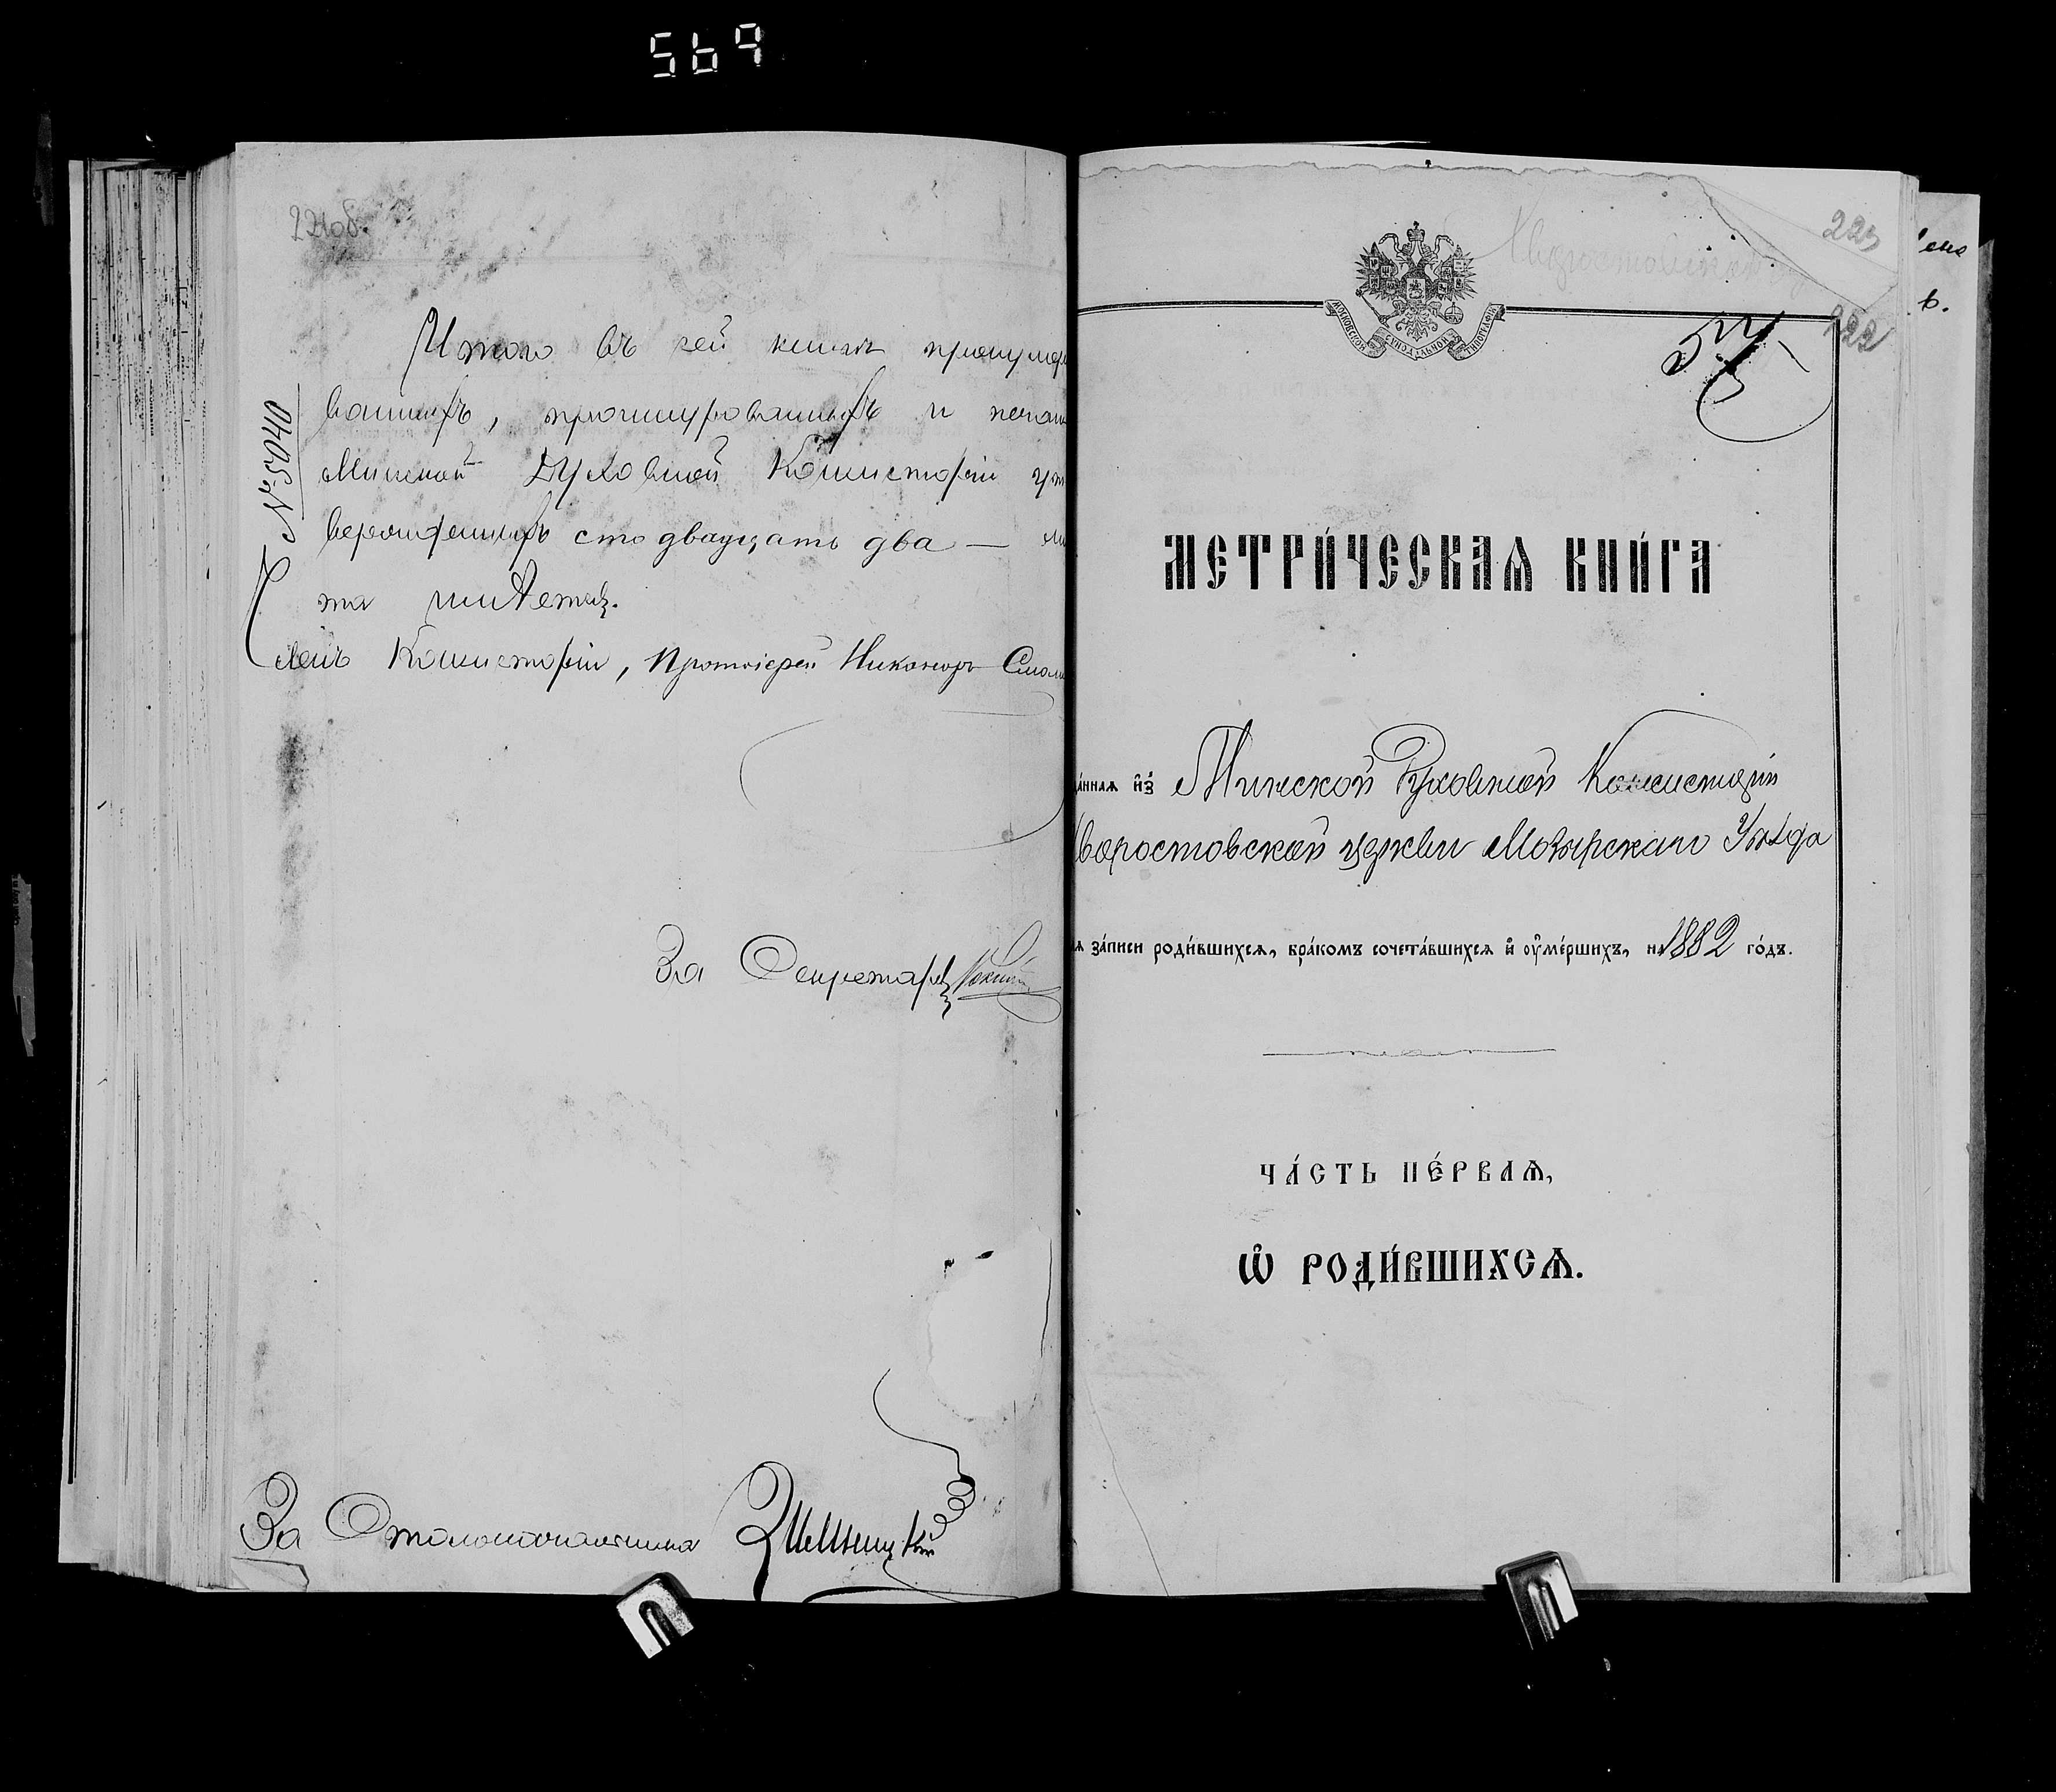 569
221об.
Итого въ сей книгѣ пронумеро
ванныхъ, прошнурованныхъ и печатью
Минской Духовной Консисторіи ут
вержденныхъ сто двадцать два — лис
та имѣется.
№ 5040
Членъ Консисторіи, Протоіерей Никаноръ Смол
За Секретаря
За Столоначальника
223
222
57
МОСКОВСКОЙ СѴНОДАЛЬНОЙ ТИПОГРАФІИ
МЕТРИ́ЧЕСКАѦ КНИ́ГА
а́ннаѧ и҆з̾ Минской Духовной Консисторіи
Хворостовской церкви Мозырскаго Уѣзда
ѧ за́писи роди́вшихсѧ, бра́комъ сочета́вшихсѧ и҆ ᲂу҆ме́ршихъ, на 1882 го́дъ.
ЧА́СТЬ ПЕ́РВАѦ,
Ѡ҆ РОДИ́ВШИХСѦ.